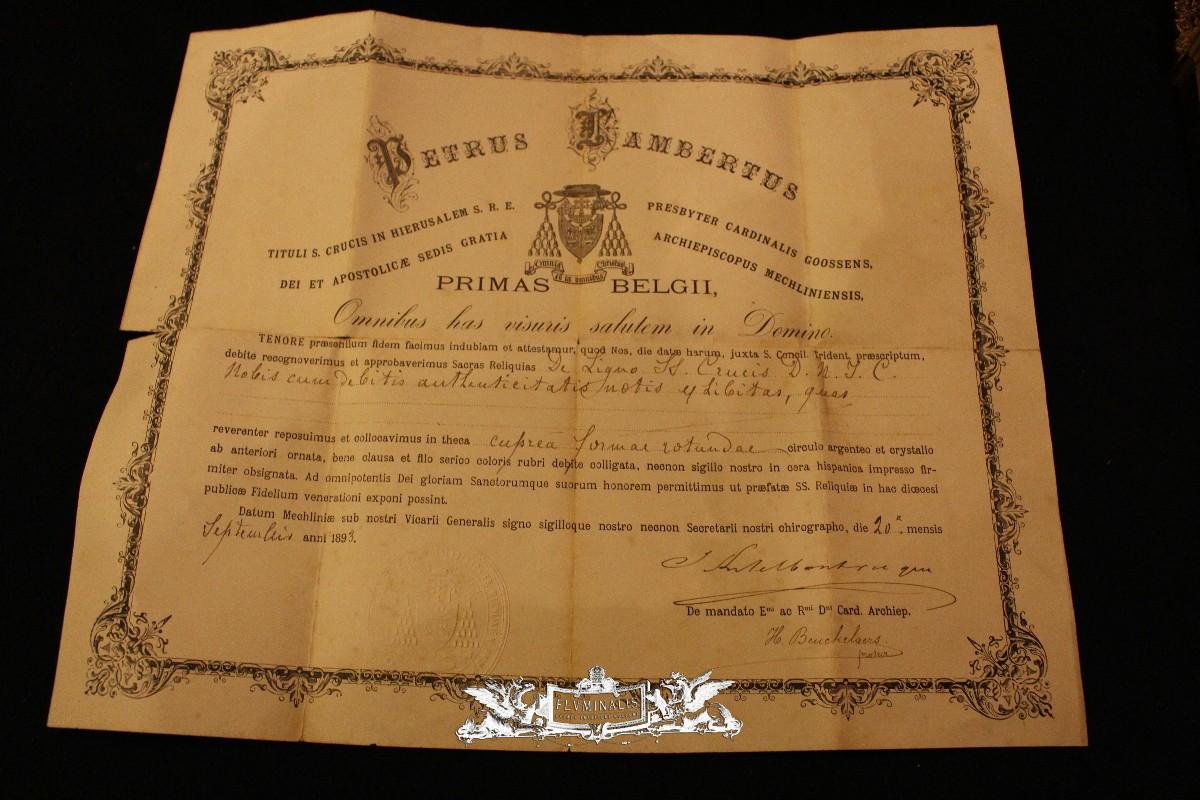 PETRUS LAMBERTUS
TITULI S. CRUCIS IN HIERUSALEM S. R. E. PRESBYTER CARDINALIS GOOSSENS,
DEI ET APOSTOLICÆ SEDIS GRATIA ARCHIEPISCOPUS MECHLINIENSIS,
Omnia et in omnibus Christus
PRIMAS BELGII,
Omnibus has visuris salutem in Domino.
TENORE præsentium fidem facimus indubiam et attestamur, quod Nos, die datæ harum, juxta S. Concil. Trident. præscriptum,
debite recognoverimus et approbaverimus Sacras Reliquias De Ligno SS. Crucis D. N. J. C.
Nobis cum debitis authenticitatis notis exhibitas, quas
reverenter reposuimus et collocavimus in theca cuprea formae rotundae circulo argenteo et crystallo
ab anteriori ornata, bene clausa et filo serico coloris rubri debite colligata, necnon sigillo nostro in cera hispanica impresso fir-
miter obsignata. Ad omnipotentis Dei gloriam Sanctorumque suorum honorem permittimus ut præfatæ SS. Reliquiæ in hac diœcesi
publicæ Fidelium venerationi exponi possint.
Datum Mechliniæ sub nostri Vicarii Generalis signo sigilloque nostro necnon Secretarii nostri chirographo, die 20a. mensis
Septembris anni 1893.
De mandato Emi ac Rmi Dni Card. Archiep.
H. Beuckelaers
FLVMINALIS